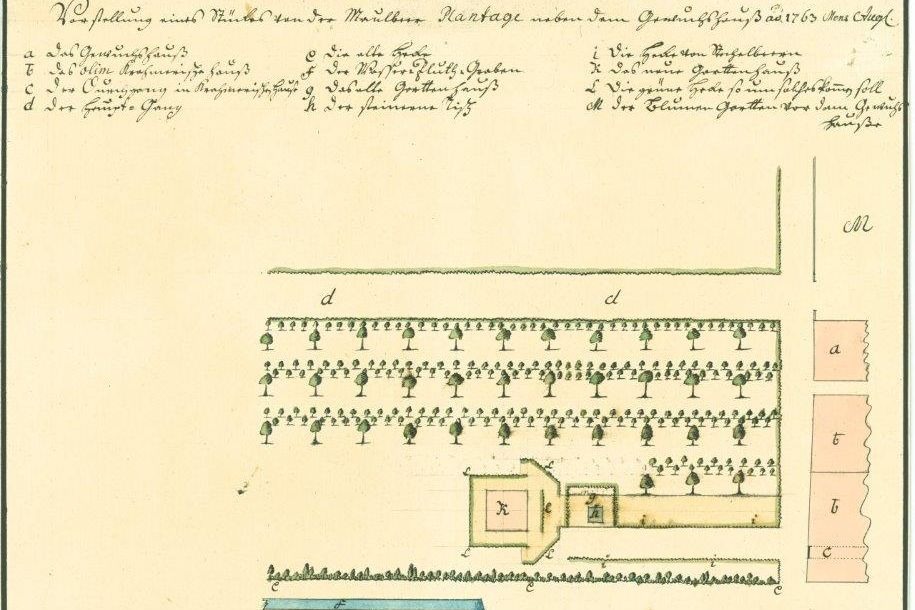 Vorstellung eines Stückes von der Maulbeer Plantage neben dem Gewächshauß ao. 1763 Mens. Augl.
a das Gewächshauß
b das olim Krahmerische hauß
c Der Durchgang in Krahmerische hauß
d der Haupt-Gang
e die alte Hecke
f Der Wasser-Fluth-Graben
g Das alte Garttenhauß
h der steinerne Tisch
i Die Hecke von Stachelbeern
K das neue Garttenhauß
L Die grüne Hecke so um solches komen soll
M der Blumen Gartten vor dem Gewächs
hauße
M
d d
a
b
g
K e h b
i i
L L
c
i i
e e e
f